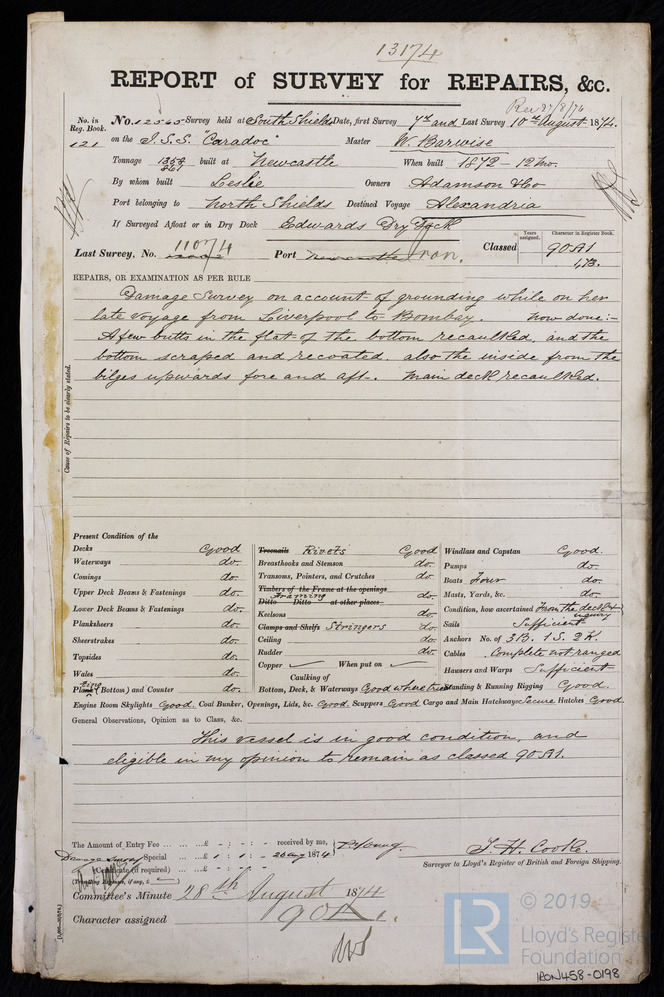 13174
REPORT of SURVEY for REPAIRS, &c.
Rec 27/8/74
No. in Reg. Book. No. 12565 Survey held at South Shields Date, first Survey 7th and Last Survey 10th August 1874.
121 on the I.S.S. "Caradoc" Master W. Barwise
Tonnage 1353 861 built at Newcastle When built 1872 - 12 mo.
By whom built Leslie Owners Adamson & Co
Port belonging to North Shields Destined Voyage Alexandria
If Surveyed Afloat or in Dry Dock Edwards Dry Dock
Last Survey, No. 11074 Port Iron. Classed Years assigned. Character in Register Book. 90A1
1,73.
REPAIRS, OR EXAMINATION AS PER RULE
Damage Survey on account of grounding while on her
late voyage from Liverpool to Bombay. Now done:-
A few butts in the flat of the bottom recaulked, and the
bottom scraped and recoated also the inside from the
bilges upwards fore and aft. Main deck recaulked.
Cause of Repairs to be clearly stated.
Present Condition of the
Decks Good
Waterways do.
Comings do.
Upper Deck Beams & Fastenings do.
Lower Deck Beams & Fastenings do.
Planksheers do.
Sheerstrakes do.
Topsides do.
Wales do.
Plating (Bottom) and Counter do.
Treenails Rivets Good
Breasthooks and Stemson do.
Transoms, Pointers, and Crutches do.
Timbers of the Frame at the openings
Framing do.
Ditto Ditto at other places
Keelsons do.
Clamps and Shelfs Stringers do.
Ceiling do.
Rudder do.
Copper When put on
Caulking of
Bottom, Deck, & Waterways Good where tried
Windlass and Capstan Good.
Pumps do.
Boats Four do.
Masts, Yards, &c. do.
Condition, how ascertained From the deck & inquiry
Sails Sufficient
Anchors No. of 3B. 1S. 2K.
Cables Complete not ranged
Hawsers and Warps Sufficient
Standing & Running Rigging Good.
Engine Room Skylights Good. Coal Bunker, Openings, Lids, &c. Good Scuppers Good Cargo and Main Hatchways Secure Hatches Good
General Observations, Opinion as to Class, &c.
This vessel is in good condition, and
eligible in my opinion to remain as classed 90A1.
The Amount of Entry Fee ... ... £ - : - : - received by me,
Damage Survey Special ... £ 1 : 1 : - 26 Aug 1874
(Certificate (if required) ... £ - : - : -
(Travelling Expenses, if any, £
J. H. Cooke.
Surveyor to Lloyd's Register of British and Foreign Shipping.
Committee's Minute 28th August 1874
Character assigned 90A1.
© 2019
LR
Lloyd's Register
Foundation
IRON458-0198